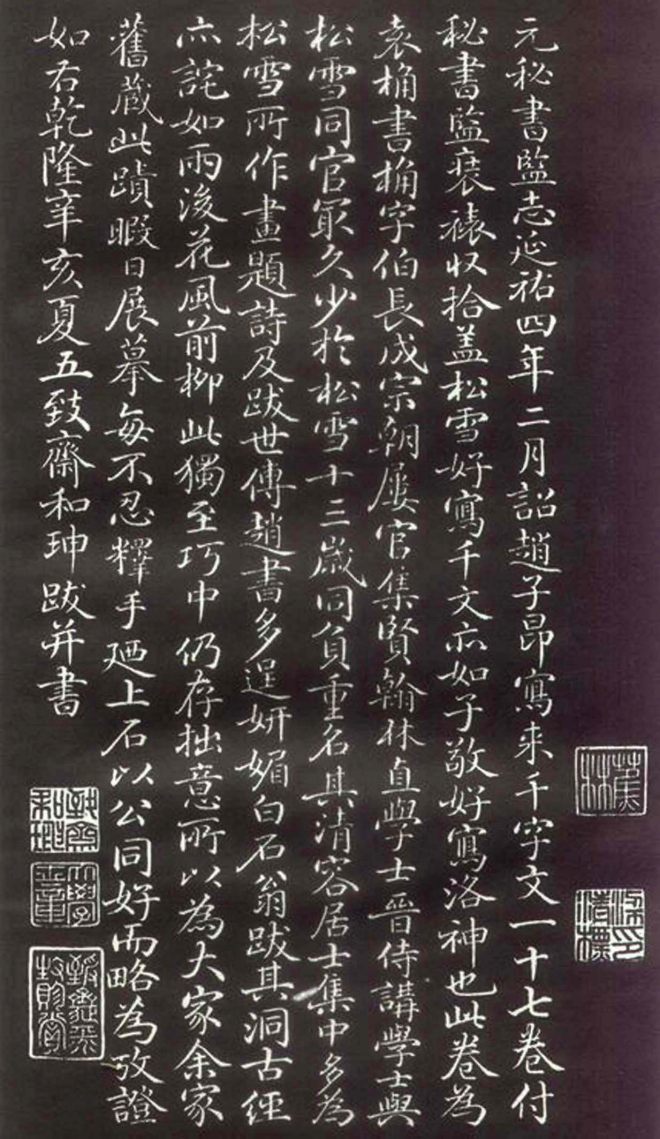 元秘書監志延祐四年二月詔趙子昂寫来千字文一十七卷付
秘書監裱収拾盖松雪好寫千文亦如子敬好寫洛神也此卷為
袁桷書桷字伯長成宗朝屢官集賢翰林直學士晉侍講學士與
松雪同官㝡久少於松雪十三歲同負重名其清容居士集中多為
松雪所作畫題詩及跋世傳趙書多逞妍媚白石翁跋其洞古經
亦詫如雨後花風前柳此獨至巧中仍存拙意所以為大家余家
舊蔵此蹟暇日展摹每不忍釋手廼上石以公同好而略為攷證
如右乾隆辛亥夏五致齋和珅跋并書
蕉林